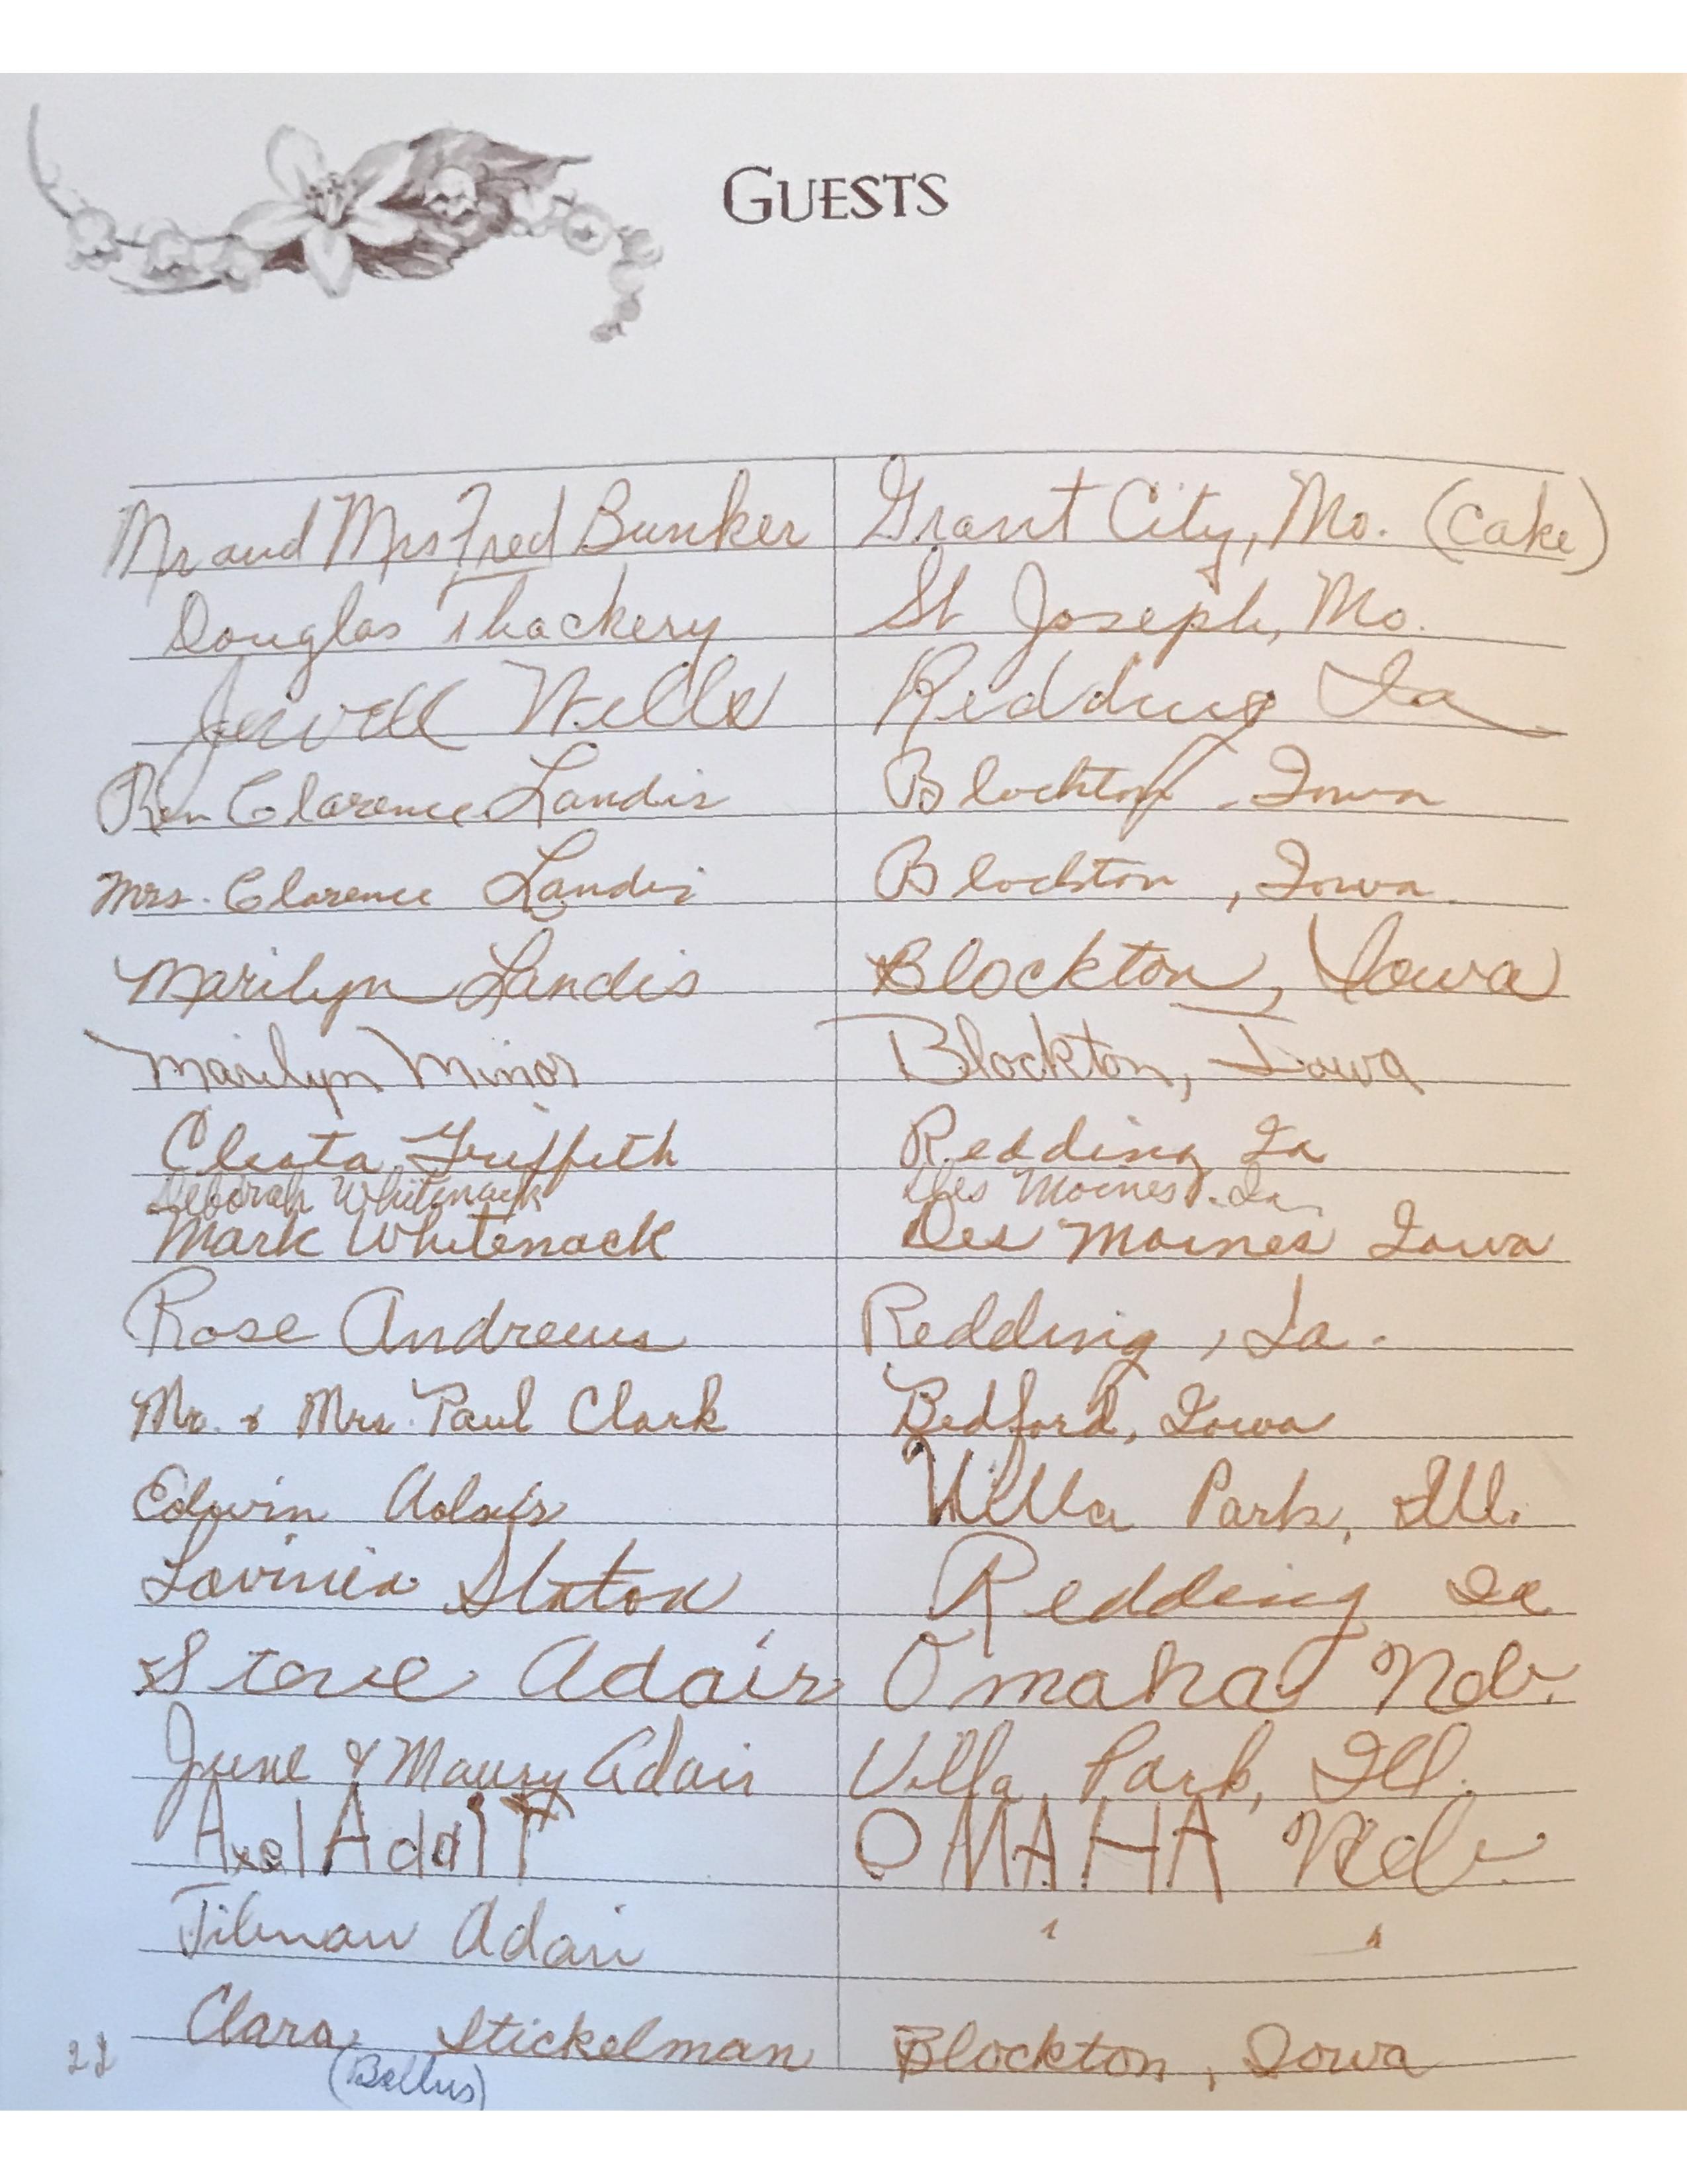 GUESTS
Mr and Mrs Fred Bunker Grant City, Mo. (Cake)
Douglas Thackery St Joseph, Mo.
Jewell Wells Redding Ia
Clarence Landis Blockton, Iowa
Mrs. Clarence Landis Blockton, Iowa
Marilyn Landis Blockton, Iowa
Marilyn Minor Blockton, Iowa
Cleota Griffith Redding Ia
Deborah Whitenack Des Moines, Ia
Mark Whitenack Des Moines Iowa
Rose Andrews Redding, Ia.
Mr. & Mrs. Paul Clark Bedford, Iowa
Edwin Adair Villa Park, Ill.
Lavinia Staton Redding Ia
Steve Adair Omaha Neb.
June & Maury Adair Villa Park, Ill.
Axel Adair OMAHA Neb.
Tilman Adair " "
Clara Stickelman Blockton, Iowa
22 (Bellus)